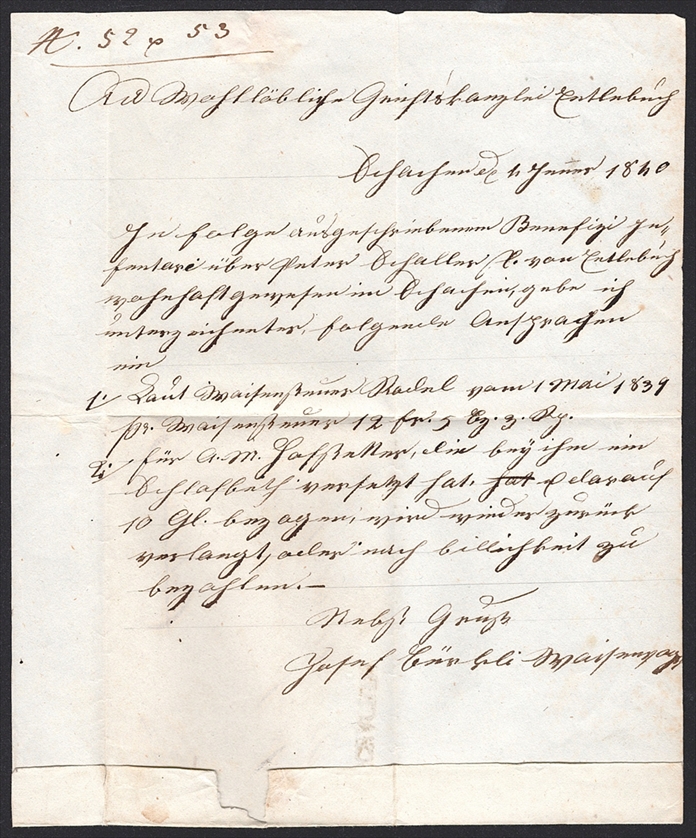 N. 52 & 53
An Wohllöbliche Gerichtskanzlei Entlebuch
Schachen d. 4 Jener 1840
In Folge ausgeschriebenem Benefizi In-
fentari über Peter Schaller, von Entlebuch
wohnhaft gewesen im Schachen, gebe ich
unterzeichneter, folgende Ansprachen
ein
1. Laut Waisensteuer Rodel vom 1 Mai 1839
pr. Waisensteuer 12 fr. 5 bz. 3 Rp.
2. für A. M. Hofstetter, die bey ihm ein
Schlafbeth versetzt hat. hat & darauf
10 Gl. bezogen, wird wieder zurück
verlangt, oder nach billichkeit zu
bezahlen. —
Nebst Gruß
Josef Bürkli Waisenvogt